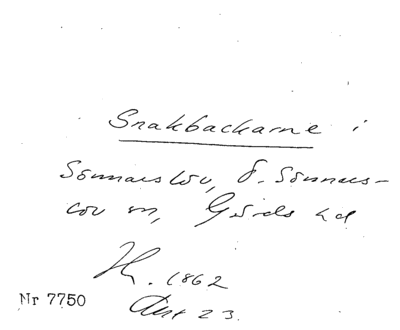 Snakbackarne i
Sönnarslöv, Ö. Sönnars-
löv sn, Gärds hd
1862
Nr 7750
23.